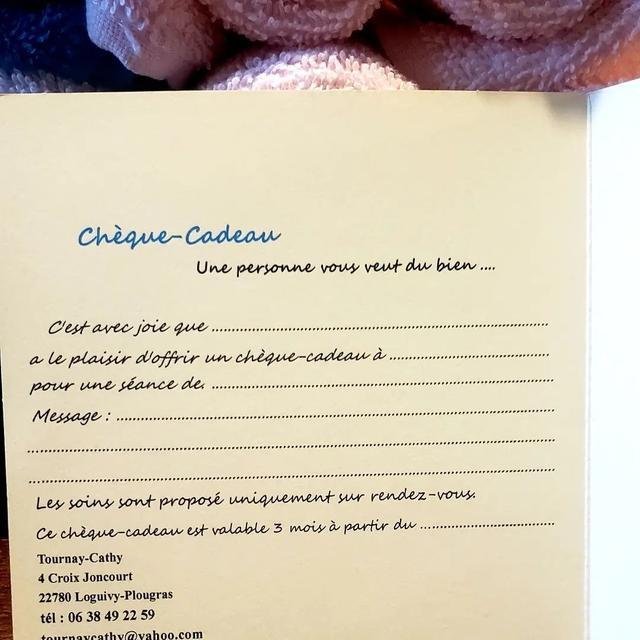 Chèque-Cadeau
Une personne vous veut du bien ....
C'est avec joie que ..........
a le plaisir d'offrir un chèque-cadeau à ..........
pour une séance de. ..........
Message : ..........
..........
..........
Les soins sont proposé uniquement sur rendez-vous.
Ce chèque-cadeau est valable 3 mois à partir du ..........
Tournay-Cathy
4 Croix Joncourt
22780 Loguivy-Plougras
tél : 06 38 49 22 59
tournaycathy@yahoo.com